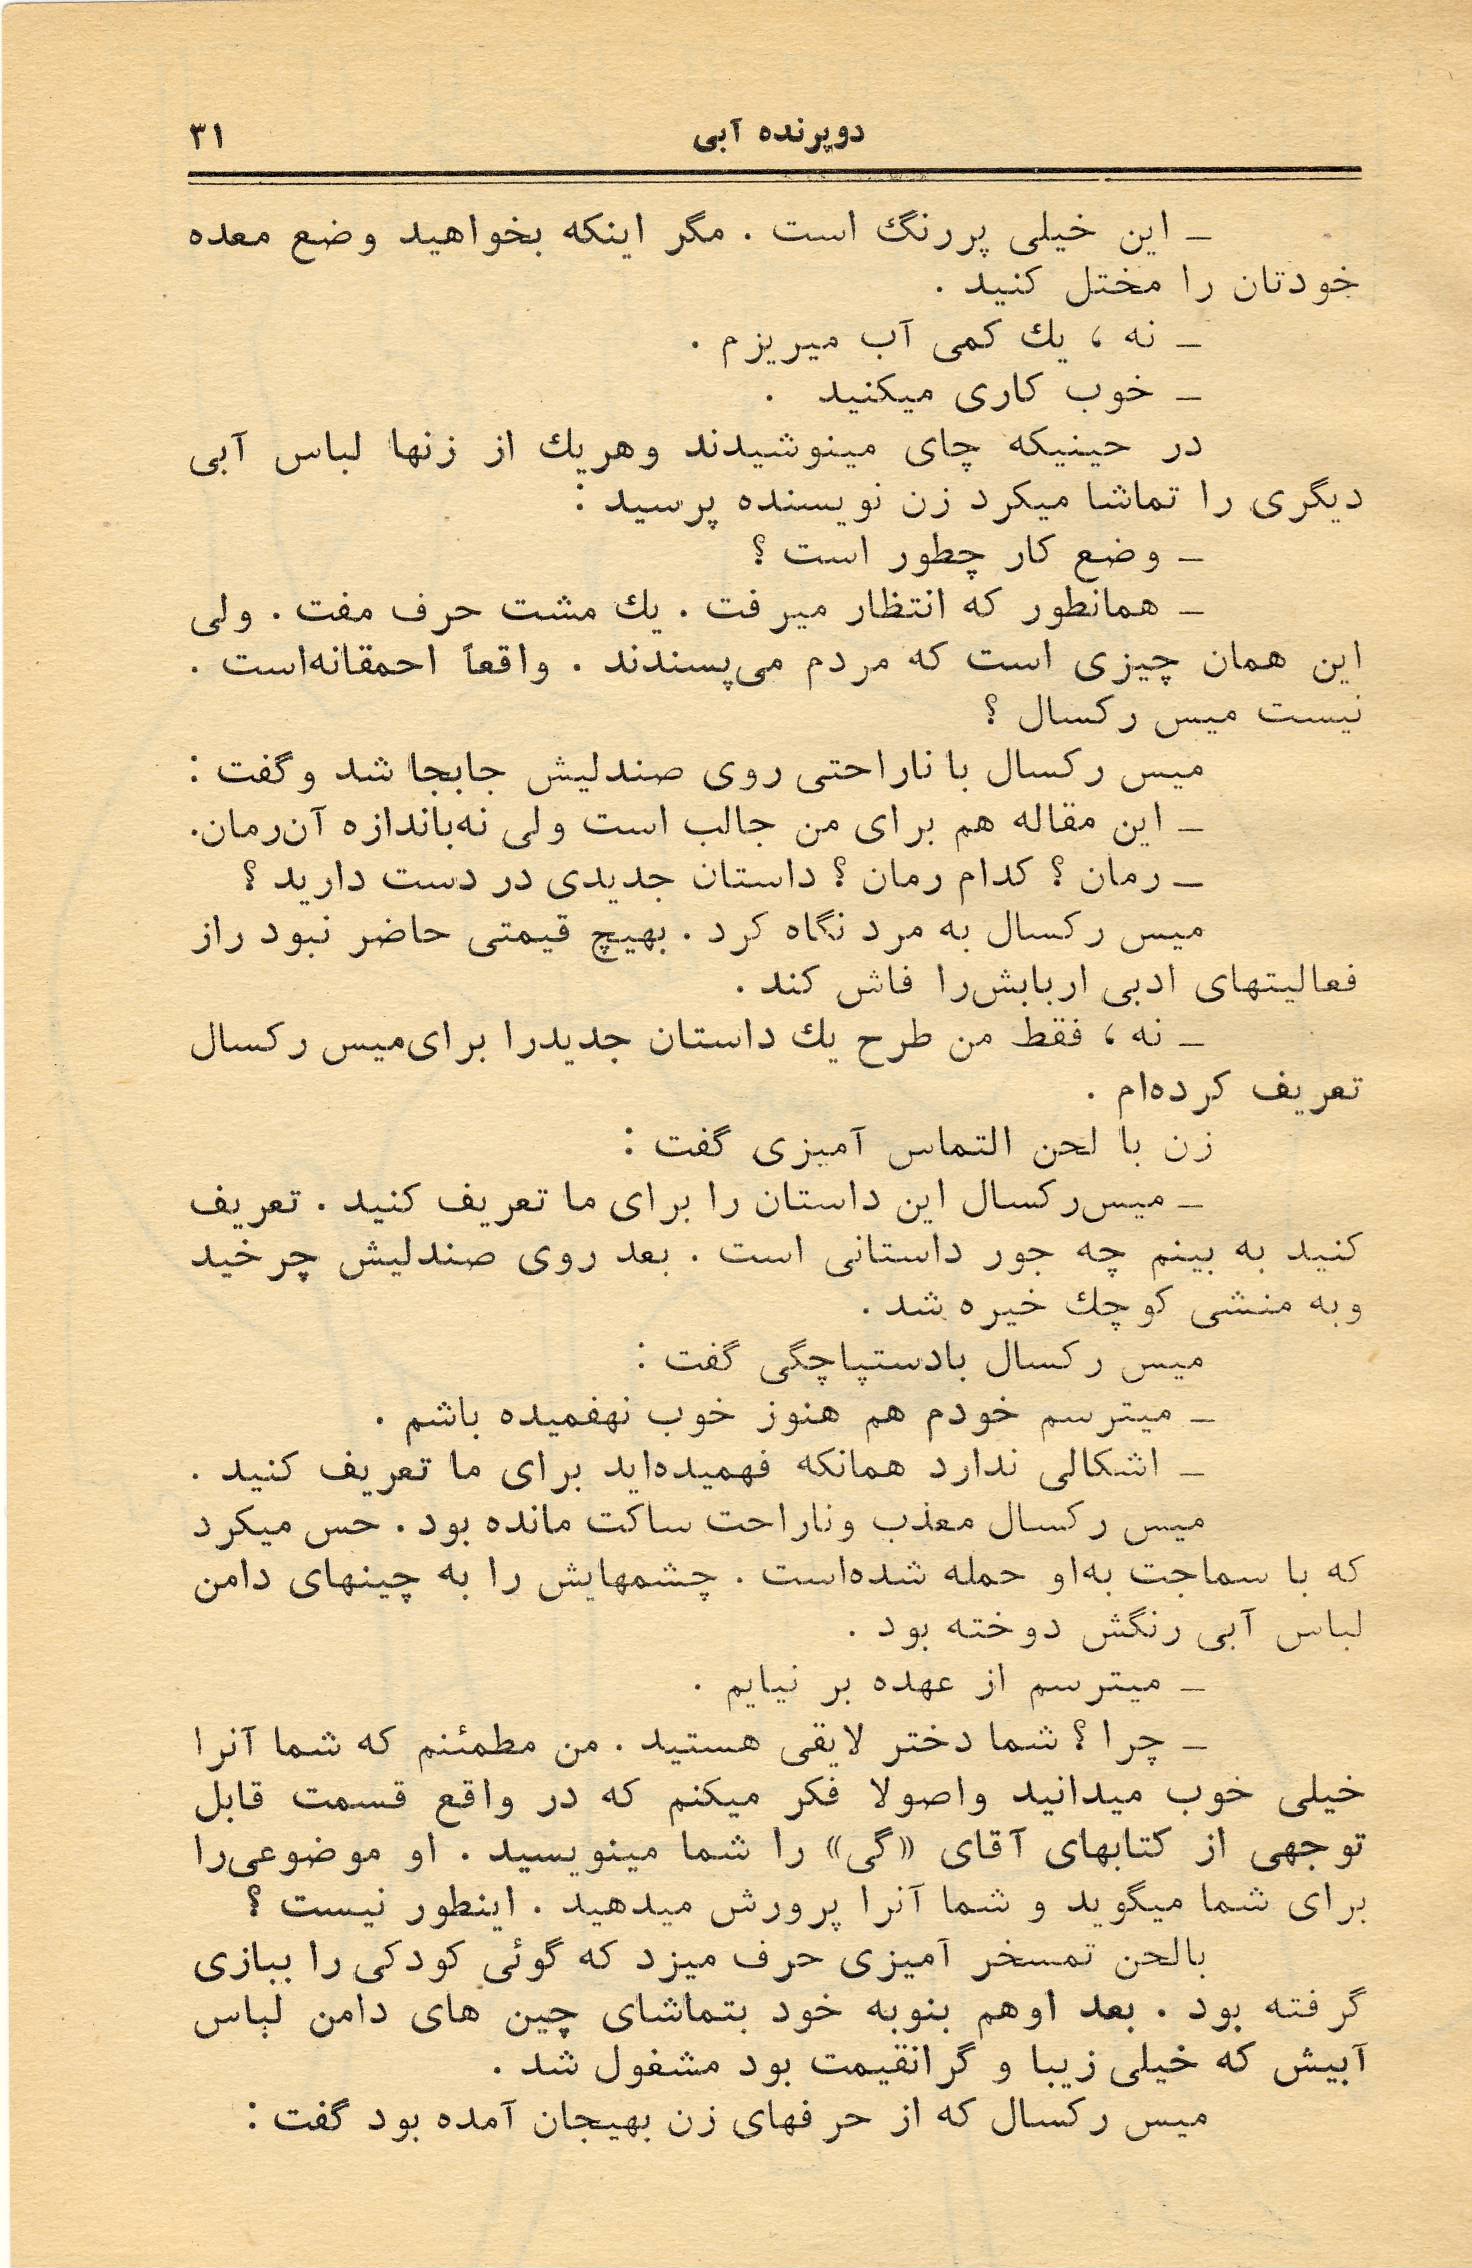 دوپرنده آبی ۳۱
ـ این خیلی پررنگ است . مگر اینکه بخواهید وضع معده
خودتان را مختل کنید .
ـ نه ، یك کمی آب میریزم .
ـ خوب کاری میکنید .
در حینیکه چای مینوشیدند وهریك از زنها لباس آبی
دیگری را تماشا میکرد زن نویسنده پرسید :
ـ وضع کار چطور است ؟
ـ همانطور که انتظار میرفت . یك مشت حرف مفت . ولی
این همان چیزی است که مردم می‌پسندند . واقعاً احمقانه‌است .
نیست میس رکسال ؟
میس رکسال با ناراحتی روی صندلیش جابجا شد و گفت :
ـ این مقاله هم برای من جالب است ولی نه‌باندازه آن‌رمان.
ـ رمان ؟ کدام رمان ؟ داستان جدیدی در دست دارید ؟
میس رکسال به مرد نگاه کرد . بهیچ قیمتی حاضر نبود راز
فعالیتهای ادبی اربابش‌را فاش کند .
ـ نه ، فقط من طرح یك داستان جدیدرا برای‌میس رکسال
تعریف کرده‌ام .
زن با لحن التماس آمیزی گفت :
ـ میس‌رکسال این داستان را برای ما تعریف کنید . تعریف
کنید به بینم چه جور داستانی است . بعد روی صندلیش چرخید
وبه منشی کوچك خیره شد .
میس رکسال بادستپاچگی گفت :
ـ میترسم خودم هم هنوز خوب نهفمیده باشم .
ـ اشکالی ندارد همانکه فهمیده‌اید برای ما تعریف کنید .
میس رکسال معذب وناراحت ساکت مانده بود . حس میکرد
که با سماجت به‌او حمله شده‌است . چشمهایش را به چینهای دامن
لباس آبی رنگش دوخته بود .
ـ میترسم از عهده بر نیایم .
ـ چرا ؟ شما دختر لایقی هستید . من مطمئنم که شما آنرا
خیلی خوب میدانید واصولا فکر میکنم که در واقع قسمت قابل
توجهی از کتابهای آقای «گی» را شما مینویسید . او موضوعی‌را
برای شما میگوید و شما آنرا پرورش میدهید . اینطور نیست ؟
بالحن تمسخر آمیزی حرف میزد که گوئی کودکی را ببازی
گرفته بود . بعد اوهم بنوبه خود بتماشای چین های دامن لباس
آبیش که خیلی زیبا و گرانقیمت بود مشغول شد .
میس رکسال که از حرفهای زن بهیجان آمده بود گفت :